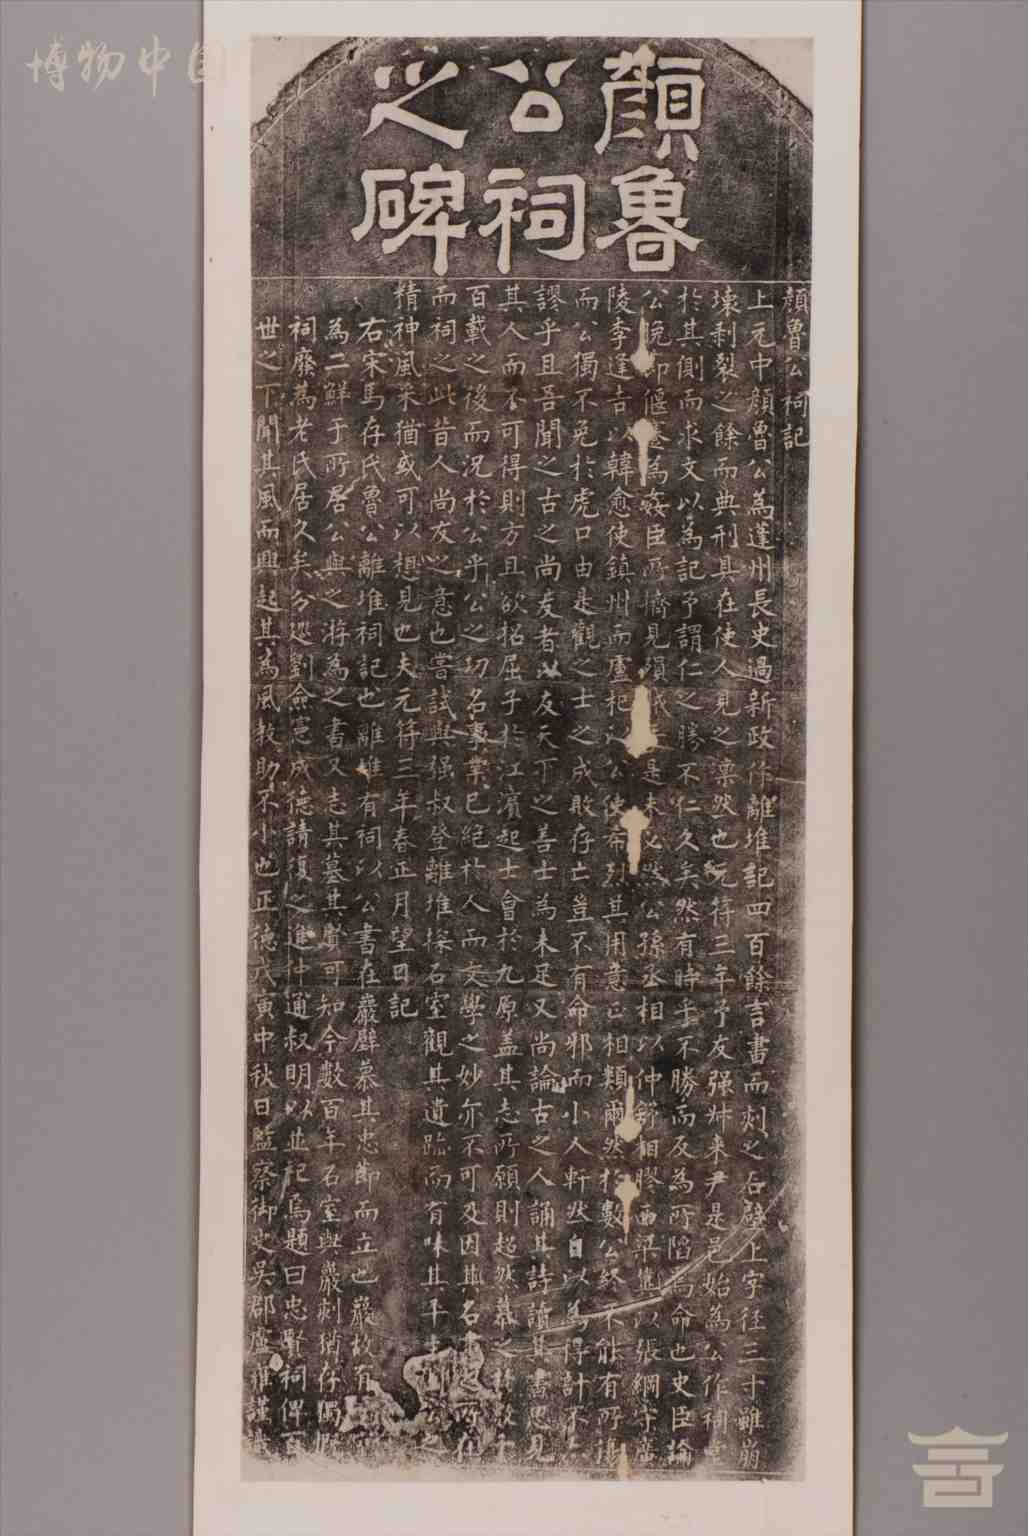 博物中国
顏魯
公祠
之碑
顏魯公祠記
上元中顏魯公為蓬州長史過新政作離堆記四百餘言書而刻之石壁上字徑三寸雖崩
壞剥裂之餘而典刑具在使人見之凜然也元符三年予友强叔来尹是邑始為公作祠堂
於其側而求文以為記予謂仁之勝不仁久矣然有時乎不勝而反為所陷焉命也史臣論
公晚節偃蹇為姦臣所擠見殞是未必然公孫丞相以仲舒相膠西梁冀以張綱守廣
陵李逢吉以韓愈使鎮州而盧杞以公使希烈其用意正相類爾然於數公終不能有所傷
而公獨不免於虎口由是觀之士之成敗存亡豈不有命邪而小人軒然自以為得計不
謬乎且吾聞之古之尚友者以友天下之善士為未足又尚論古之人誦其詩讀其書思見
其人而不可得則方且欲招屈子於江濱起士會於九原盖其志所願則超然慕之於數千
百載之後而況於公乎公之功名事業已絕於人而文學之妙亦不可及因其名書之所在
而祠之此昔人尚友之意也嘗試與强叔登離堆探石室觀其遺跡而有味其平生則公之
精神風采猶或可以想見也夫元符三年春正月望日記
右宋馬存氏魯公離堆祠記也離堆有祠以公書在巖壁慕其忠節而立也巖故有
為二鮮于所居公與之游為之書又志其墓其賢可知今數百年石室與巖刺猶存偶
祠廢為老氏居久矣分巡劉僉憲成德請復之進仲通叔明以並祀焉題曰忠賢祠俾百
世之下聞其風而興起其為風教助不小也正德戊寅中秋日監察御史吳郡盧雍謹